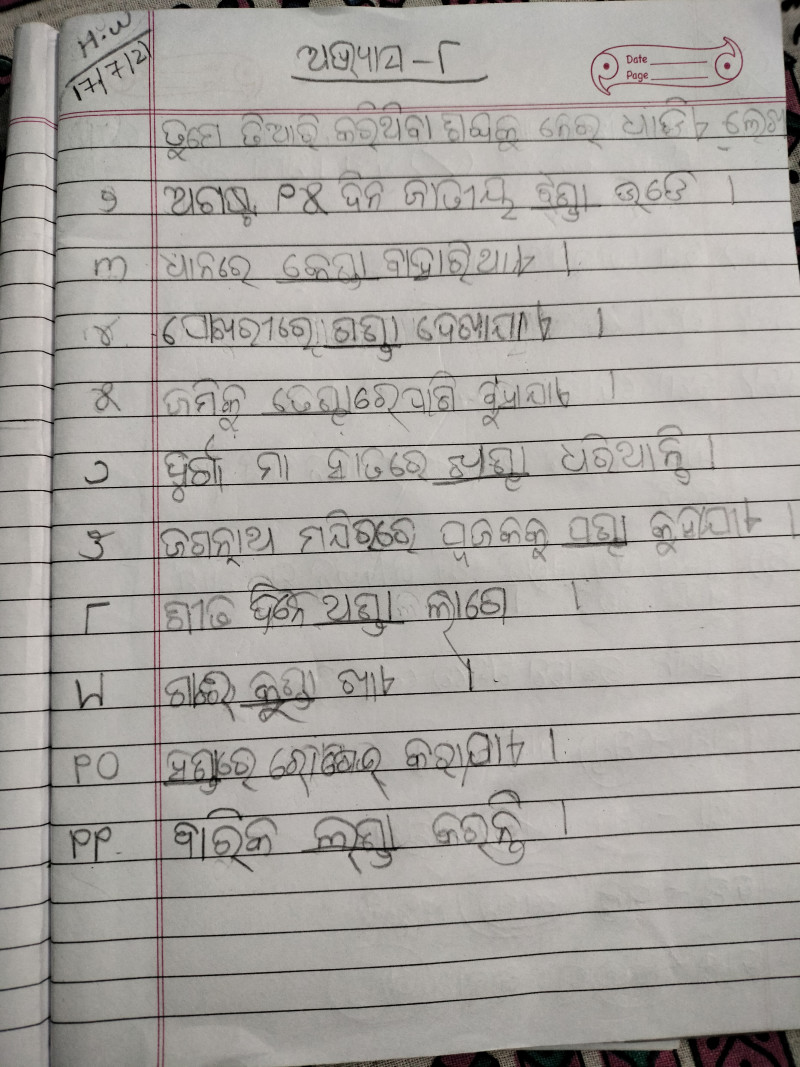 H.W
17/7/21
ଅଭ୍ୟାସ - ୮
Date
Page
ତୁମେ ତିଆରି କରିଥିବା ଶବ୍ଦକୁ ନେଇ ଧାଡ଼ିଏ ଲେଖ
୨ ଅଗଷ୍ଟ ୧୫ ଦିନ ଜାତୀୟ ଝଣ୍ଡା ଉଡେ ।
୩ ଧାନରେ କେଣ୍ଡା ବାହାରିଥାଏ ।
୪ ପୋଖରୀରେ ଗଣ୍ଡା ଦେଖାଯାଏ ।
୫ ଜମିକୁ ପାଣି ବୁହାଯାଏ ।
୬ ଦୁର୍ଗା ମା ହାତରେ ଖଣ୍ଡା ଧରିଥାନ୍ତି ।
୭ ଜଗନ୍ନାଥ ମନ୍ଦିରରେ ପୂଜକକୁ ପଣ୍ଡା କୁହାଯାଏ ।
୮ ଶୀତ ଦିନେ ଥଣ୍ଡା ଲାଗେ ।
୯ ଗାଈ କୁଣ୍ଡା ଖାଏ ।
୧୦ ହଣ୍ଡାରେ ରୋଷେଇ କରାଯାଏ ।
୧୧ ବାରିକ ଲଣ୍ଡା କରନ୍ତି ।